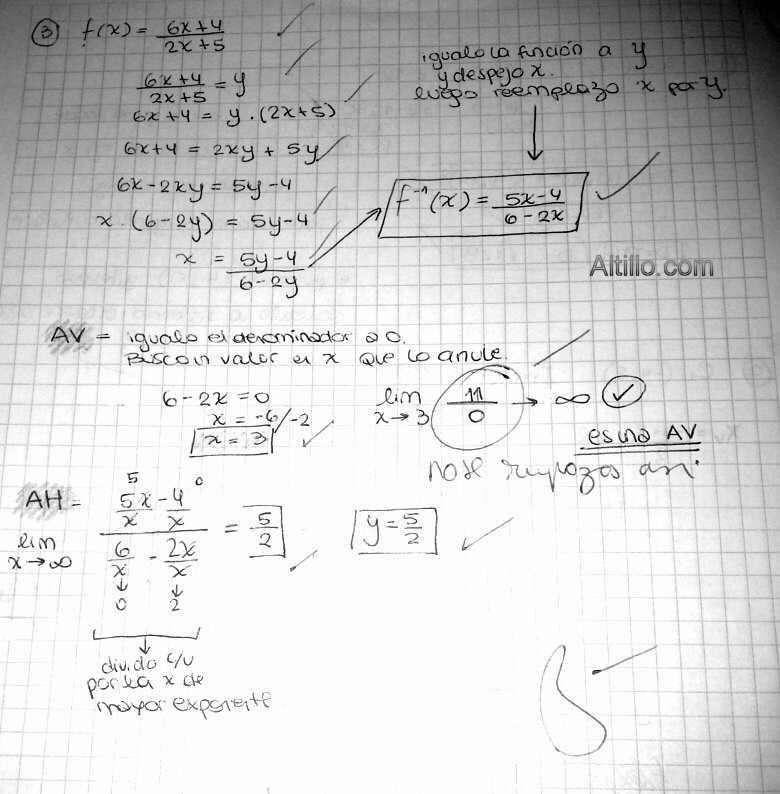 ③ f(x) = 6x+4 / 2x+5
6x+4 / 2x+5 = y
6x+4 = y.(2x+5)
6x+4 = 2xy + 5y
6x-2xy = 5y-4
x.(6-2y) = 5y-4
x = 5y-4 / 6-2y
igualo la función a y
y despejo x.
luego reemplazo x por y.
f⁻¹(x) = 5x-4 / 6-2x
Altillo.com
AV = igualo el denominador a 0.
Busco un valor en x que lo anule.
6-2x=0
x = -6/-2
x = 3
lim x→3 11/0 → ∞
es una AV
no se
AH =
lim x→∞
5x/x - 4/x
6/x - 2x/x
5 0
0 2
= 5/2
y = 5/2
divido c/u
por la x de
mayor exponente